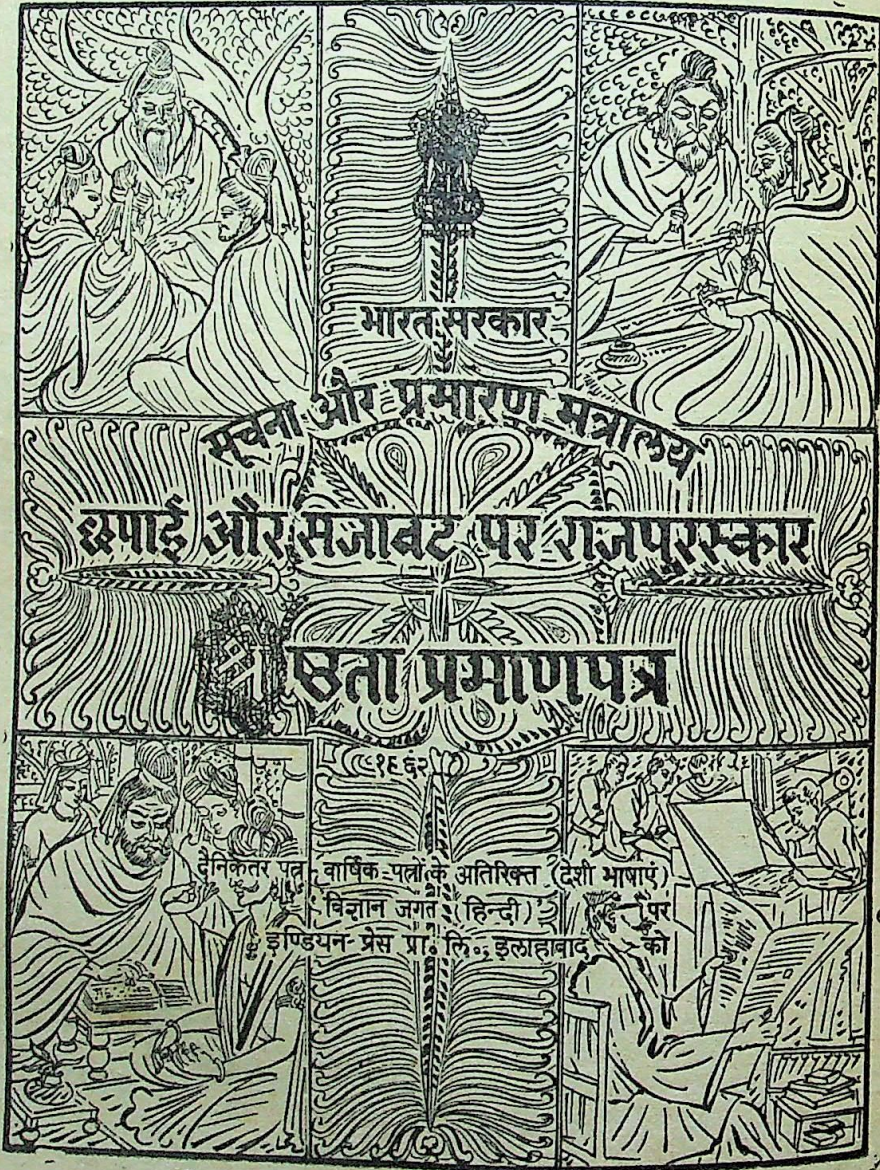 भारत सरकार
सूचना और प्रसारण मंत्रालय
छपाई और सजावट पर राजपुरस्कार
श्रेष्ठता प्रमाणपत्र
१९६२
दैनिकेतर पत्र वार्षिक-पत्रों के अतिरिक्त (देशी भाषाएं)
विज्ञान जगत (हिन्दी) पर
इण्डियन प्रेस प्रा. लि., इलाहाबाद को